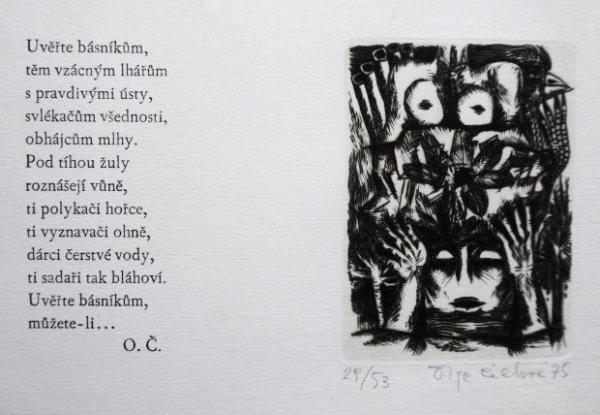 Uvěřte básníkům,
těm vzácným lhářům
s pravdivými ústy,
svlékačům všednosti,
obhájcům mlhy.
Pod tíhou žuly
roznášejí vůně,
ti polykači hořce,
ti vyznavači ohně,
dárci čerstvé vody,
ti sadaři tak bláhoví.
Uvěřte básníkům,
můžete-li...
O. Č.
29/53 Olga 75